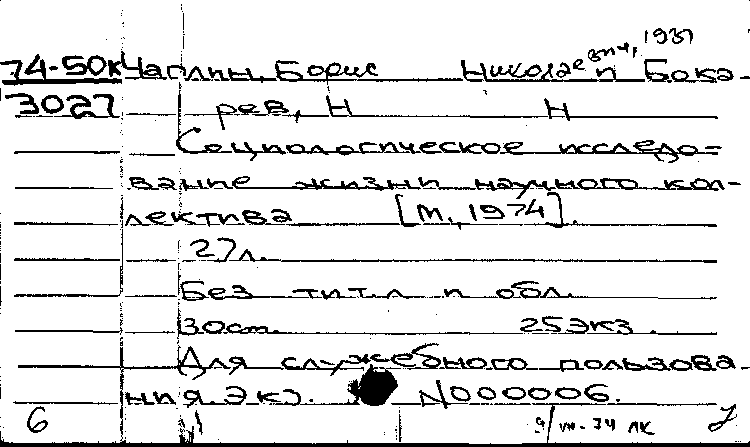 74-50к Чаплин, Борис Николаевич, 1931 и Бока-
3027 рев, Н Н
Социологическое исследо=
вание жизни научного кол-
лектива [М, 1974].
27л.
Без тит.л и обл.
30ст. 25экз.
Для служебного пользова
ния. Экз. N000006.
6